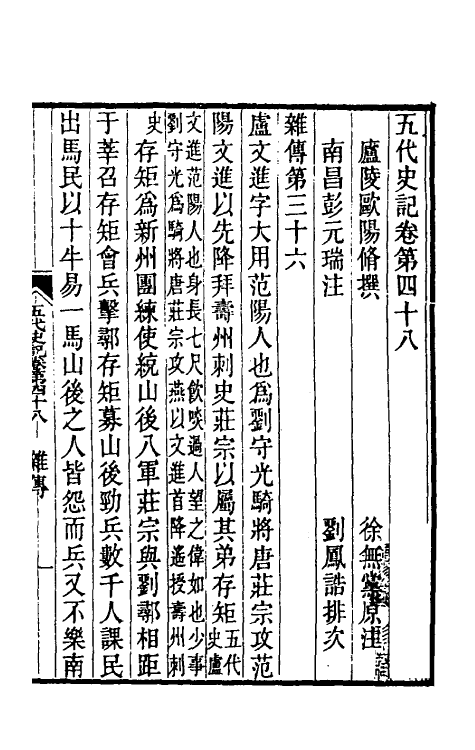 五代史記卷第四十八
廬陵歐陽脩撰　徐無黨原注
南昌彭元瑞注　劉鳳誥排次
雜傳第三十六
盧文進字大用范陽人也爲劉守光騎將唐莊宗攻范
陽文進以先降拜壽州刺史莊宗以屬其弟存矩五代史盧
文進范陽人也身長七尺飲啖過人望之偉如也少事
劉守光爲騎將唐莊宗攻燕以文進首降遙授壽州刺
史存矩爲新州團練使統山後八軍莊宗與劉鄩相距
于莘召存矩會兵擊鄩存矩募山後勁兵數千人課民
出馬民以十牛易一馬山後之人皆怨而兵又不樂南
五代史記卷第四十八　雜傳　一